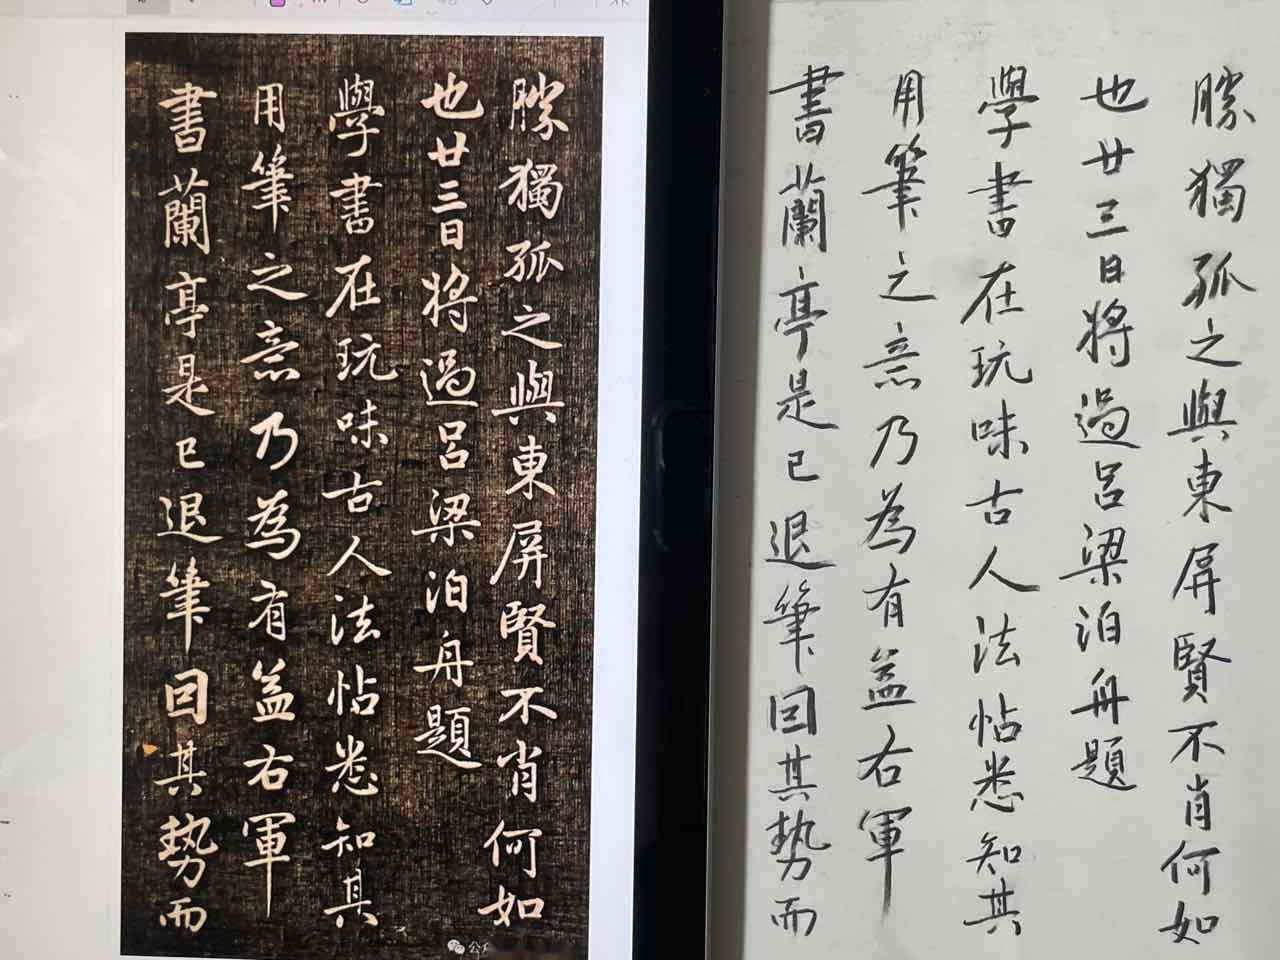 勝獨孤之與東屏賢不肖何如
也廿三日將過呂梁泊舟題
學書在玩味古人法帖悉知其
用筆之意乃為有益右軍
書蘭亭是已退筆因其勢而
勝獨孤之與東屏賢不肖何如
也廿三日將過呂梁泊舟題
學書在玩味古人法帖悉知其
用筆之意乃為有益右軍
書蘭亭是已退筆因其勢而